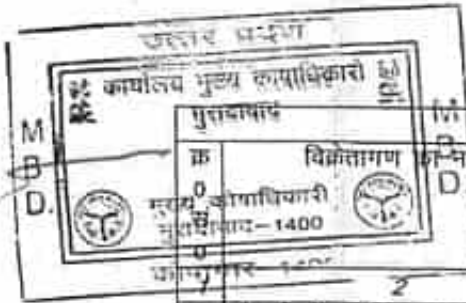 उत्तर प्रदेश
कार्यालय मुख्य कोषाधिकारी
मुरादाबाद
M
B
D.
M
B
D
क्र
0
विक्रेतागण का
मुख्य कोषाधिकारी
मुरादाबाद-1400
0
कोषागार-1400
1
2